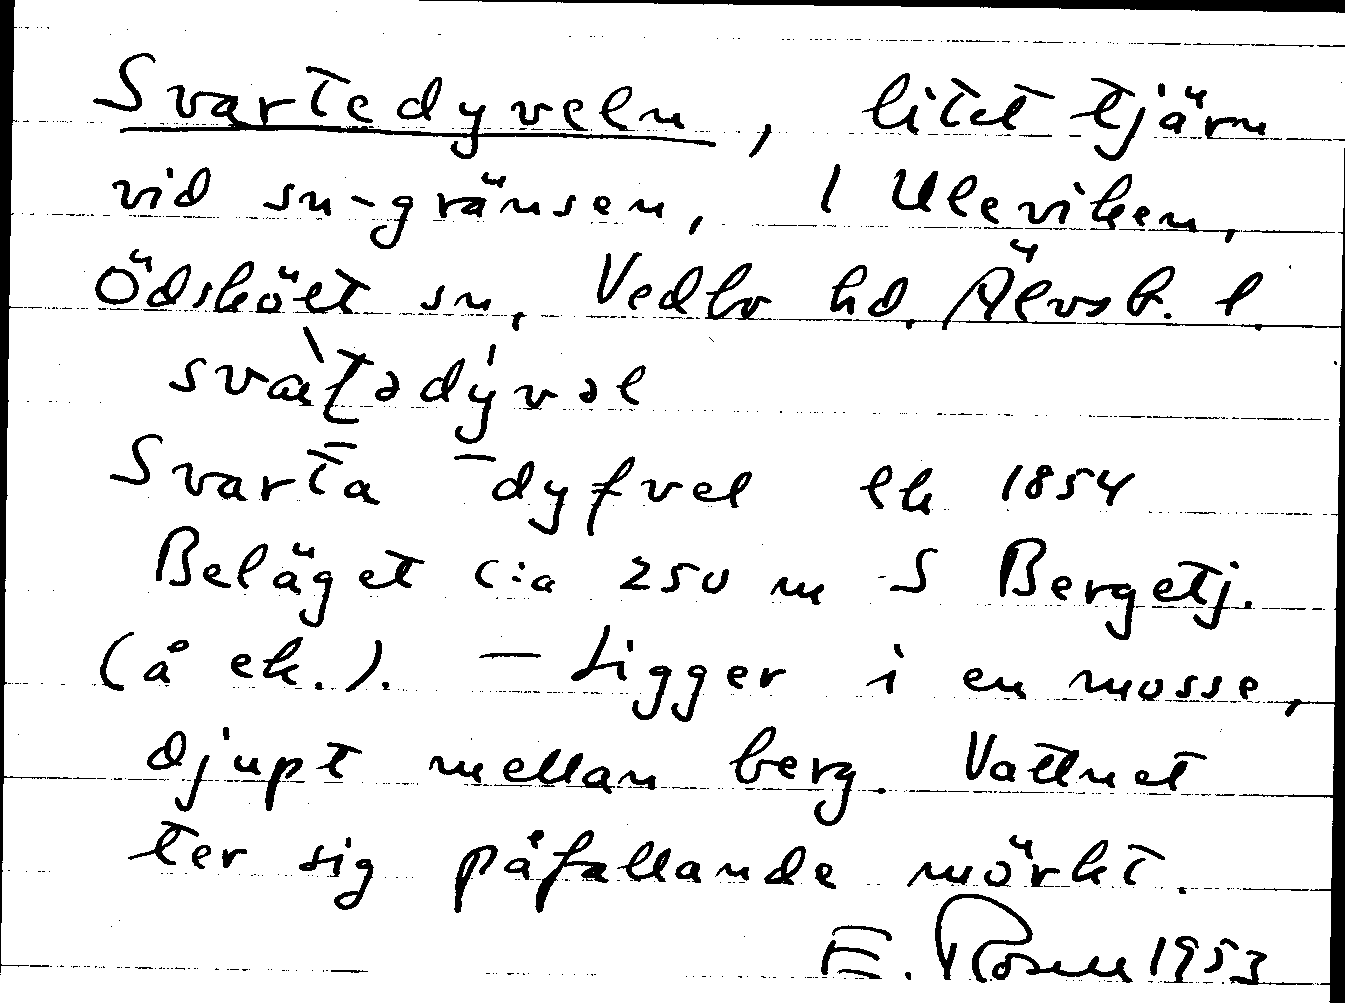 Svartedyveln, litet tjärn
vid sn-gränsen, 1 Uleviken,
Ödsköelt sn, Vedbo hd. Älvsb. l.
svàʈədývəl
Svarta dyfvel ek 1854
Beläget c:a 250 m S Bergetj.
(å ek.). — Ligger i en mosse,
djupt mellan berg. Vattnet
ter sig påfallande mörkt.
E. Rosell 1953